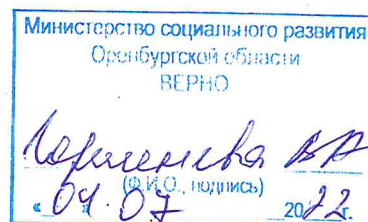 Министерство социального развития
Оренбургской области
ВЕРНО
(Ф.И.О., подпись)
« 04 » 07 2022.